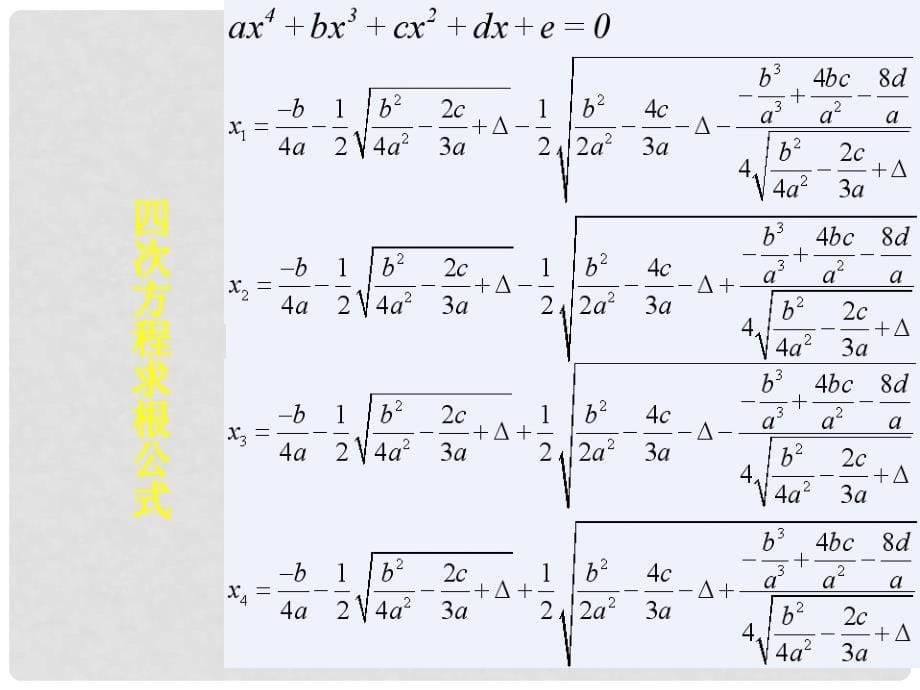 四次方程求根公式
ax⁴ + bx³ + cx² + dx + e = 0
x₁ = \frac{-b}{4a} - \frac{1}{2}\sqrt{\frac{b^2}{4a^2} - \frac{2c}{3a} + Δ} - \frac{1}{2}\sqrt{\frac{b^2}{2a^2} - \frac{4c}{3a} - Δ - \frac{-\frac{b^3}{a^3} + \frac{4bc}{a^2} - \frac{8d}{a}}{4\sqrt{\frac{b^2}{4a^2} - \frac{2c}{3a} + Δ}}}
x₂ = \frac{-b}{4a} - \frac{1}{2}\sqrt{\frac{b^2}{4a^2} - \frac{2c}{3a} + Δ} - \frac{1}{2}\sqrt{\frac{b^2}{2a^2} - \frac{4c}{3a} - Δ + \frac{-\frac{b^3}{a^3} + \frac{4bc}{a^2} - \frac{8d}{a}}{4\sqrt{\frac{b^2}{4a^2} - \frac{2c}{3a} + Δ}}}
x₃ = \frac{-b}{4a} - \frac{1}{2}\sqrt{\frac{b^2}{4a^2} - \frac{2c}{3a} + Δ} + \frac{1}{2}\sqrt{\frac{b^2}{2a^2} - \frac{4c}{3a} - Δ - \frac{-\frac{b^3}{a^3} + \frac{4bc}{a^2} - \frac{8d}{a}}{4\sqrt{\frac{b^2}{4a^2} - \frac{2c}{3a} + Δ}}}
x₄ = \frac{-b}{4a} - \frac{1}{2}\sqrt{\frac{b^2}{4a^2} - \frac{2c}{3a} + Δ} + \frac{1}{2}\sqrt{\frac{b^2}{2a^2} - \frac{4c}{3a} - Δ + \frac{-\frac{b^3}{a^3} + \frac{4bc}{a^2} - \frac{8d}{a}}{4\sqrt{\frac{b^2}{4a^2} - \frac{2c}{3a} + Δ}}}